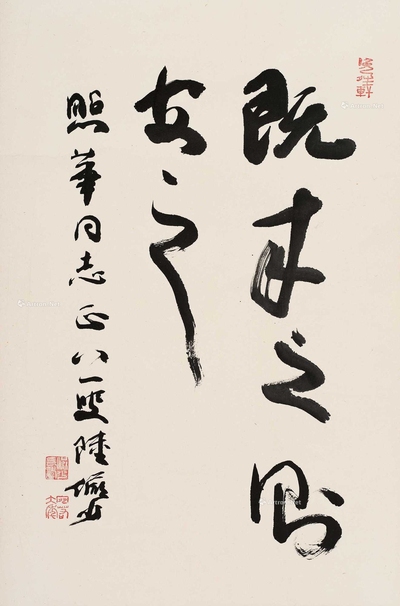 既来之则
安之
照華同志正八一叟陸儼少